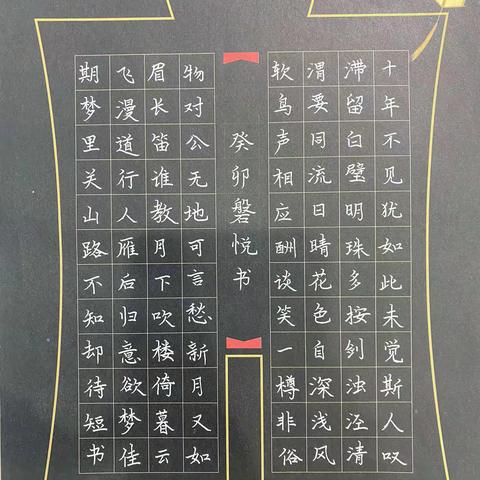 十年不见犹如此未觉斯人叹
滞留白璧明珠多按剑浊泾清
渭要同流日晴花色自深浅风
软鸟声相应酬谈笑一樽非俗
物对公无地可言愁新月又如
眉长笛谁教月下吹楼倚暮云
飞漫道行人雁后归意欲梦佳
期梦里关山路不知却待短书
癸卯磐悦书